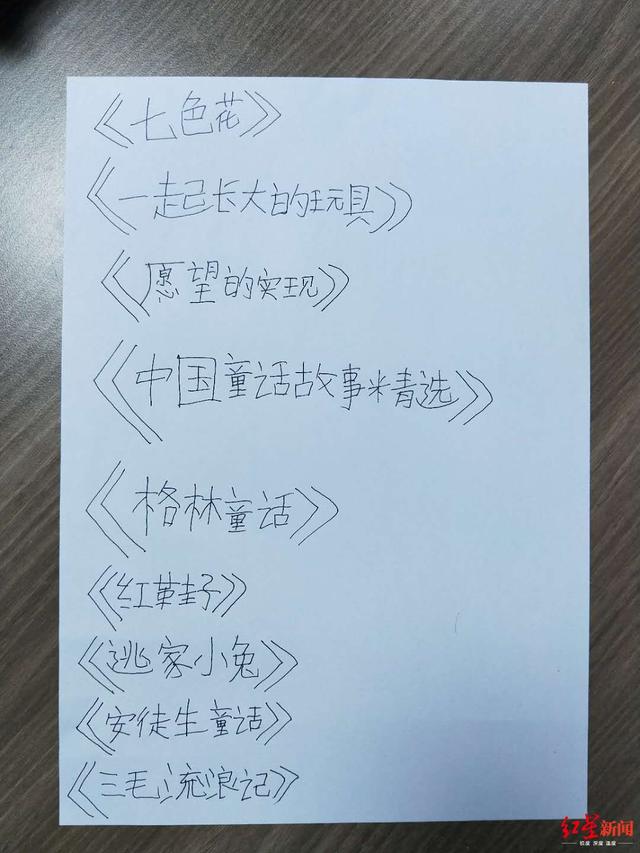 《七色花》
《一起长大的玩具》
《愿望的实现》
《中国童话故事精选》
《格林童话》
《红鞋子》
《逃家小兔》
《安徒生童话》
《三毛流浪记》
红星新闻
锐度 深度 温度